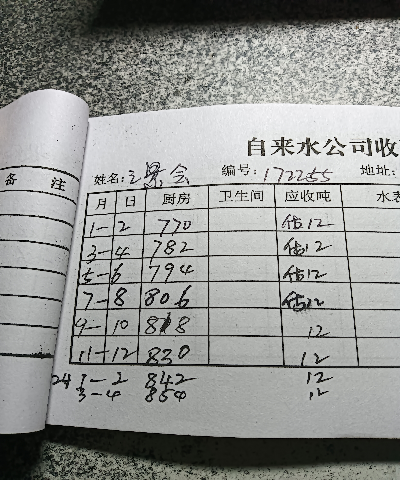 自来水公司收
备 注
姓名: 编号: 172255 地址:
月 日 厨房 卫生间 应收吨 水表
1-2 770 估12
3-4 782 估12
5-6 794 估12
7-8 806 估12
9-10 818 12
11-12 830 12
24 1-2 842 12
3-4 854 12